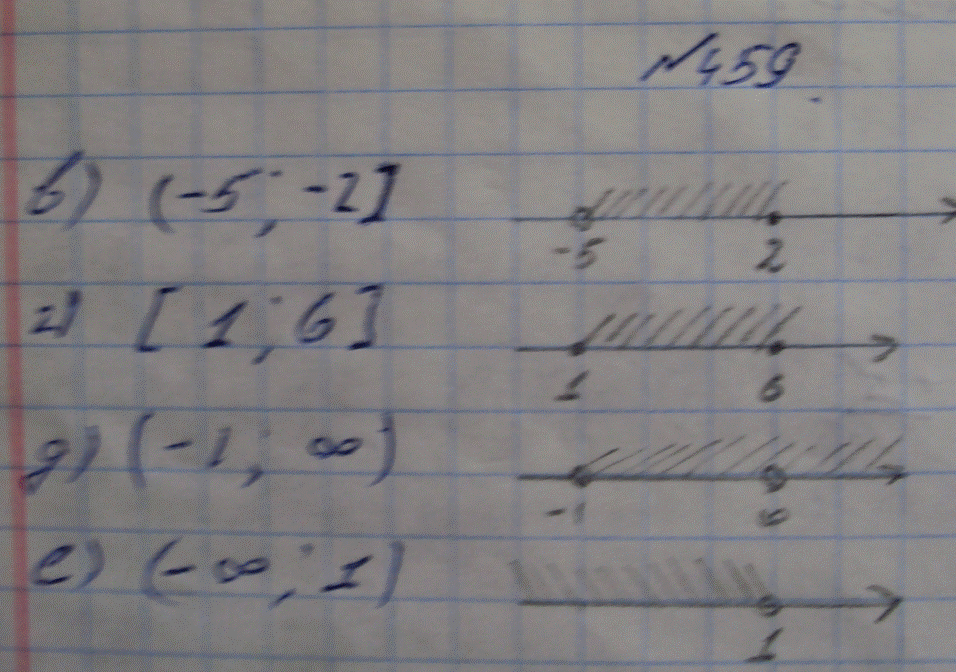 №459.
в) (-5; -2]
-5 2
г) [1; 6]
1 6
д) (-1; ∞)
-1 ∞
е) (-∞; 1)
1